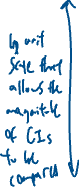 by unit
Scale that
allows the
magnitude
of CIs
to be
compared